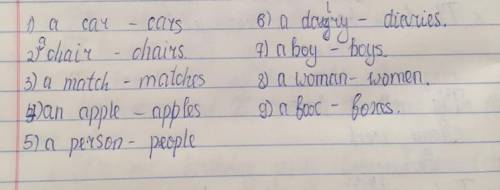 1) a car - cars
2) a chair - chairs
3) a match - matches
4) an apple - apples
5) a person - people
6) a - diaries.
7) a boy - boys.
8) a woman - women.
9) a box - boxes.